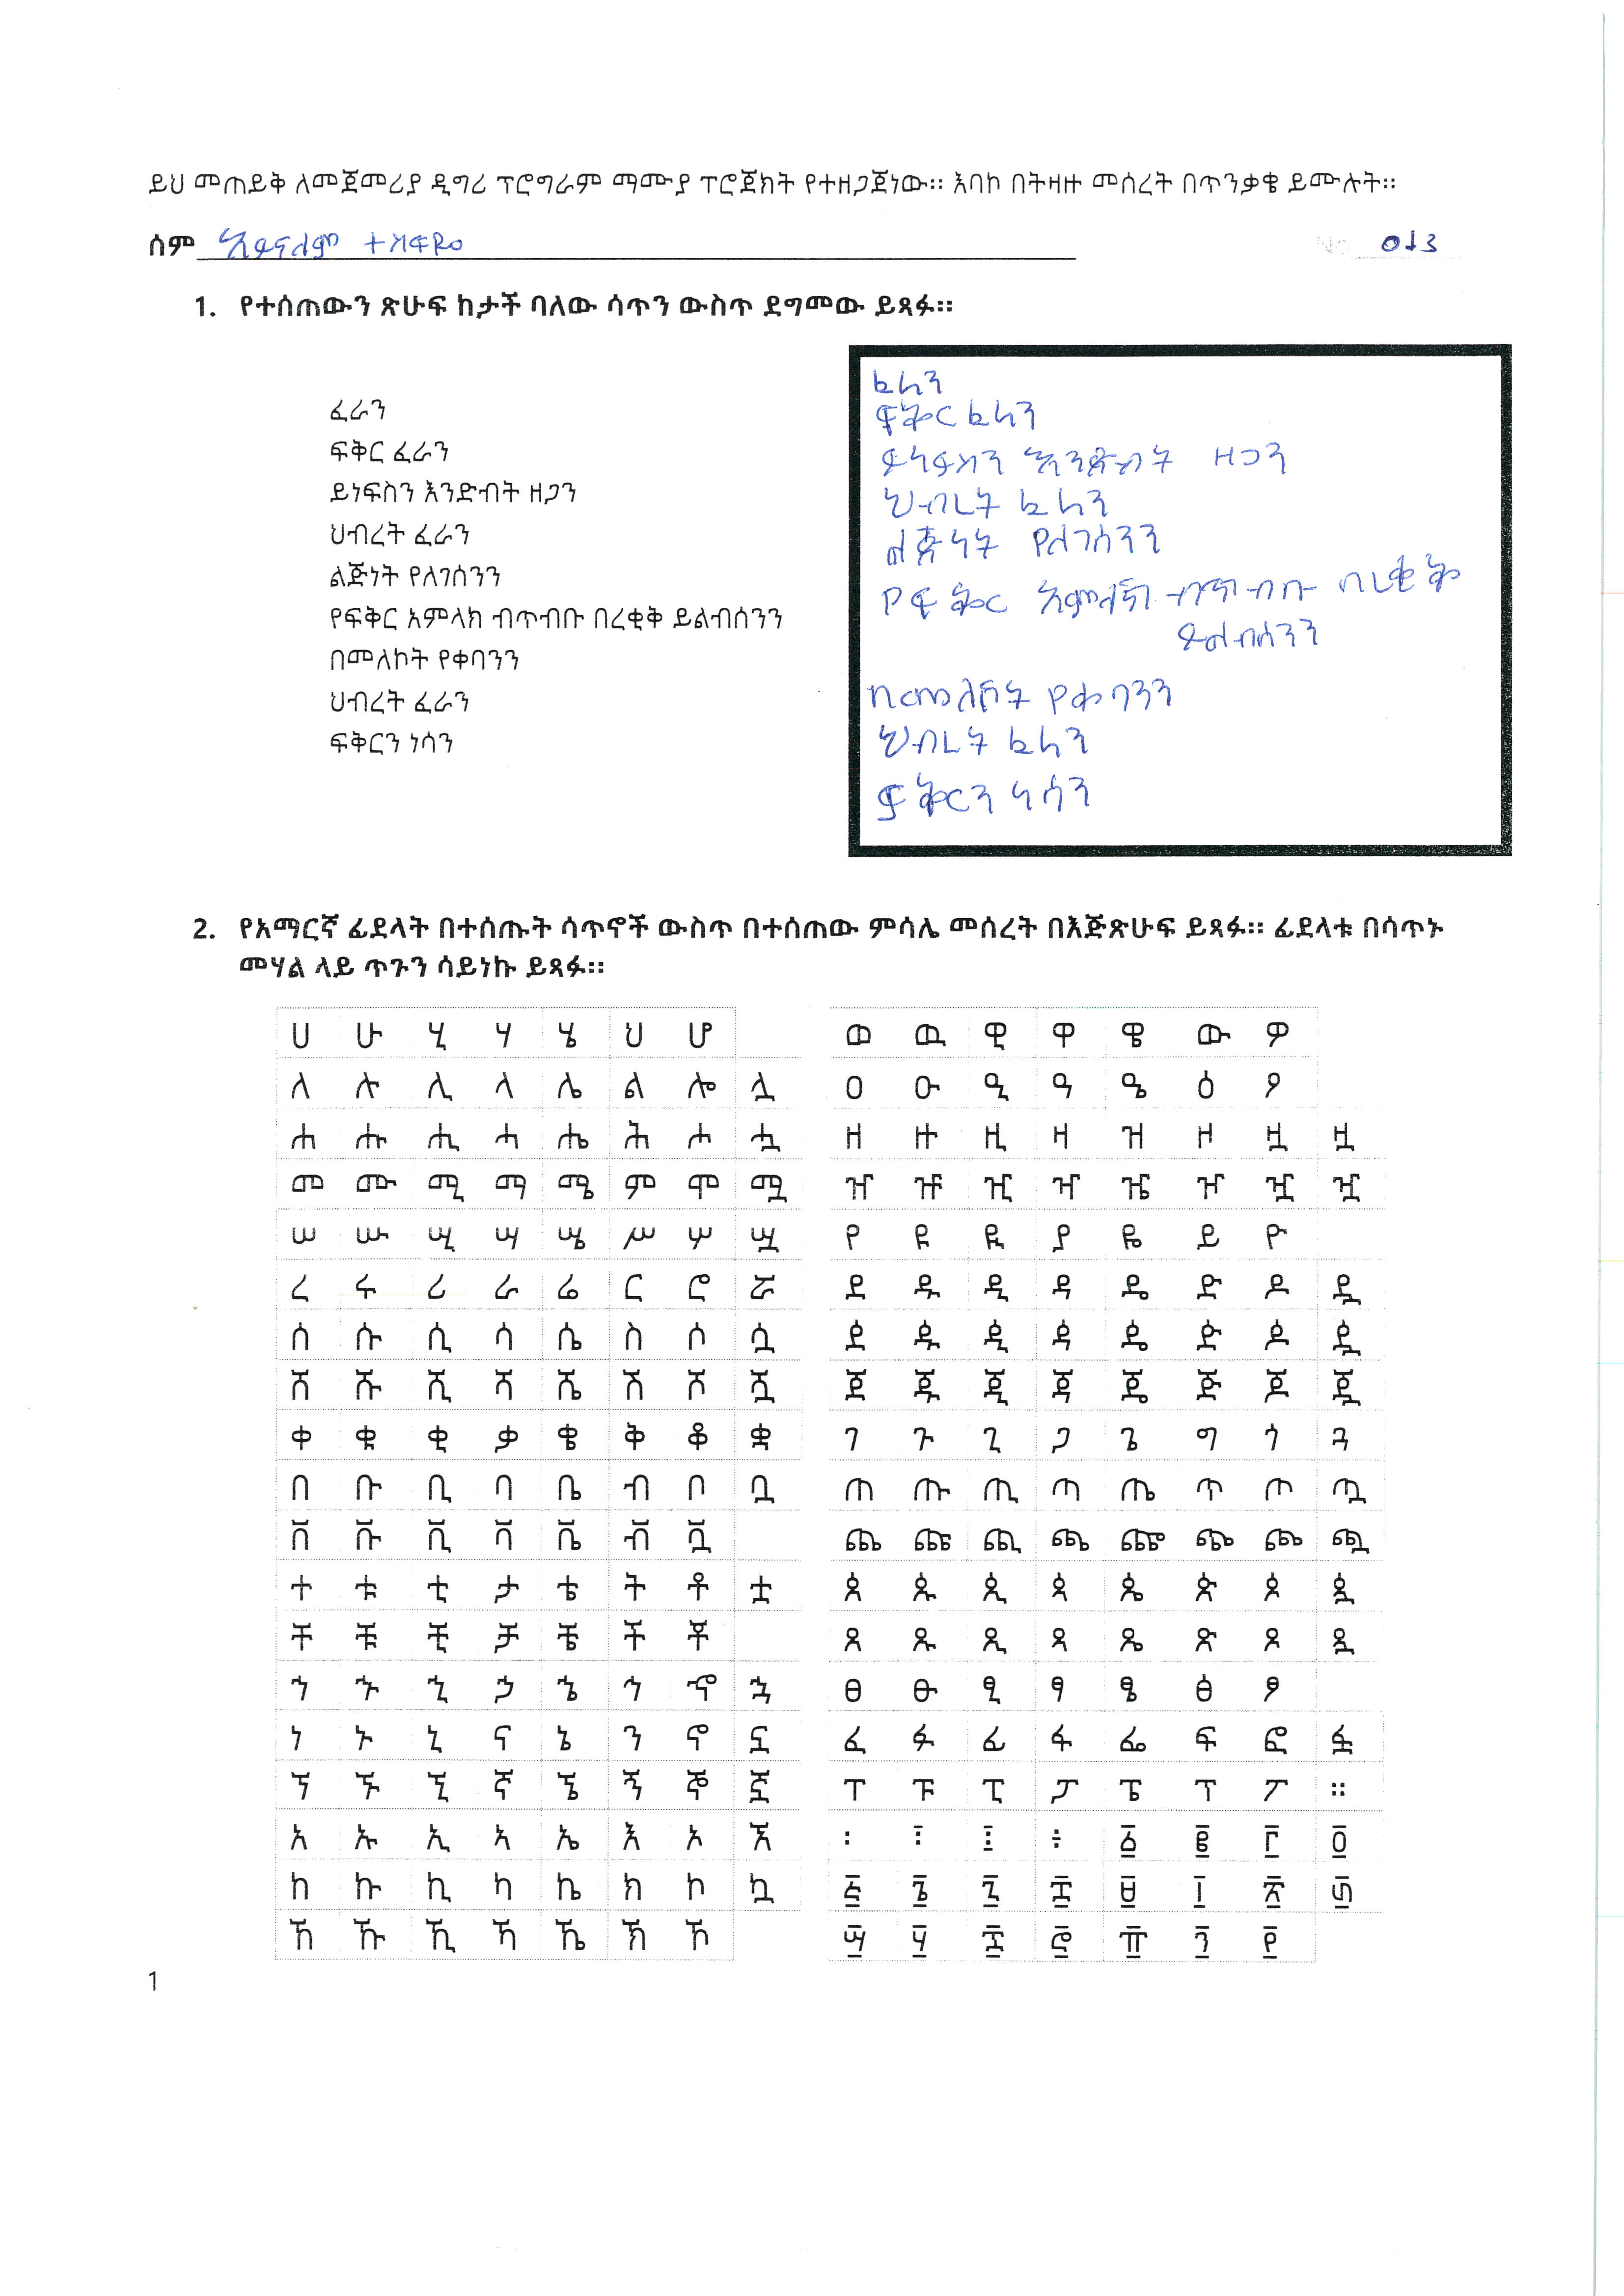 ይህ መጠይቅ ለመጀመሪያ ዲግሪ ፕሮግራም ማሙያ ፕሮጀክት የተዘጋጀነው። እባኮ በትዛዙ መሰረት በጥንቃቄ ይሙሉት።
ስም ዓይናለም ተስፋዬ 013
1. የተሰጠውን ጽሁፍ ከታች ባለው ሳጥን ውስጥ ደግመው ይጻፉ።
ፈራን
ፍቅር ፈራን
ይነፍስን እንድብት ዘጋን
ህብረት ፈራን
ልጅነት የለገሰንን
የፍቅር አምላክ ብጥብቡ በረቂቅ ይልብሰንን
በመለኮት የቀባንን
ህብረት ፈራን
ፍቅርን ነሳን
ፈራን
ፍቅር ፈራን
ይነፍስን እንድብት ዘጋን
ህብረት ፈራን
ልጅነት የለገሰንን
የፍቅር አምላክ ብጥብቡ በረቂቅ
ይልብሰንን
በመለኮት የቀባንን
ህብረት ፈራን
ፍቅርን ነሳን
2. የአማርኛ ፊደላት በተሰጡት ሳጥኖች ውስጥ በተሰጠው ምሳሌ መሰረት በእጅጽሁፍ ይጻፉ። ፊደላቱ በሳጥኑ
መሃል ላይ ጥጉን ሳይነኩ ይጻፉ።
ሀ ሁ ሂ ሃ ሄ ህ ሆ
ለ ሉ ሊ ላ ሌ ል ሎ ሏ
ሐ ሑ ሒ ሓ ሔ ሕ ሖ ሗ
መ ሙ ሚ ማ ሜ ም ሞ ሟ
ሠ ሡ ሢ ሣ ሤ ሥ ሦ ሧ
ረ ሩ ሪ ራ ሬ ር ሮ ሯ
ሰ ሱ ሲ ሳ ሴ ስ ሶ ሷ
ሸ ሹ ሺ ሻ ሼ ሽ ሾ ሿ
ቀ ቁ ቂ ቃ ቄ ቅ ቆ ቋ
በ ቡ ቢ ባ ቤ ብ ቦ ቧ
ቨ ቩ ቪ ቫ ቬ ቭ ቯ
ተ ቱ ቲ ታ ቴ ት ቶ ቷ
ቸ ቹ ቺ ቻ ቼ ች ቾ
ኀ ኁ ኂ ኃ ኄ ኅ ኆ ኋ
ነ ኑ ኒ ና ኔ ን ኖ ኗ
ኘ ኙ ኚ ኛ ኜ ኝ ኞ ኟ
አ ኡ ኢ ኣ ኤ እ ኦ ኧ
ከ ኩ ኪ ካ ኬ ክ ኮ ኳ
ኸ ኹ ኺ ኻ ኼ ኽ ኾ
ወ ዉ ዊ ዋ ዌ ው ዎ
ዐ ዑ ዒ ዓ ዔ ዕ ዖ
ዘ ዙ ዚ ዛ ዝ ዞ ዟ ዟ
ዠ ዡ ዢ ዣ ዤ ዦ ዧ ዧ
የ ዩ ዪ ያ ዬ ይ ዮ
ደ ዱ ዲ ዳ ዴ ድ ዶ ዷ
ዸ ዹ ዺ ዻ ዼ ዽ ዾ ዿ
ጀ ጁ ጂ ጃ ጄ ጅ ጆ ጇ
ገ ጉ ጊ ጋ ጌ ግ ጎ ጓ
ጠ ጡ ጢ ጣ ጤ ጥ ጦ ጧ
ጨ ጩ ጪ ጫ ጬ ጭ ጮ ጯ
ጰ ጱ ጲ ጳ ጴ ጵ ጶ ጷ
ጸ ጹ ጺ ጻ ጼ ጽ ጾ ጿ
ፀ ፁ ፂ ፃ ፄ ፅ ፆ
ፈ ፉ ፊ ፋ ፌ ፍ ፎ ፏ
ፐ ፑ ፒ ፓ ፔ ፕ ፖ ።
፡ ፣ ፤ ÷ ፩ ፪ ፫ ፬
፭ ፮ ፯ ፰ ፱ ፲ ፳ ፴
፵ ፶ ፷ ፸ ፹ ፺ ፻
1